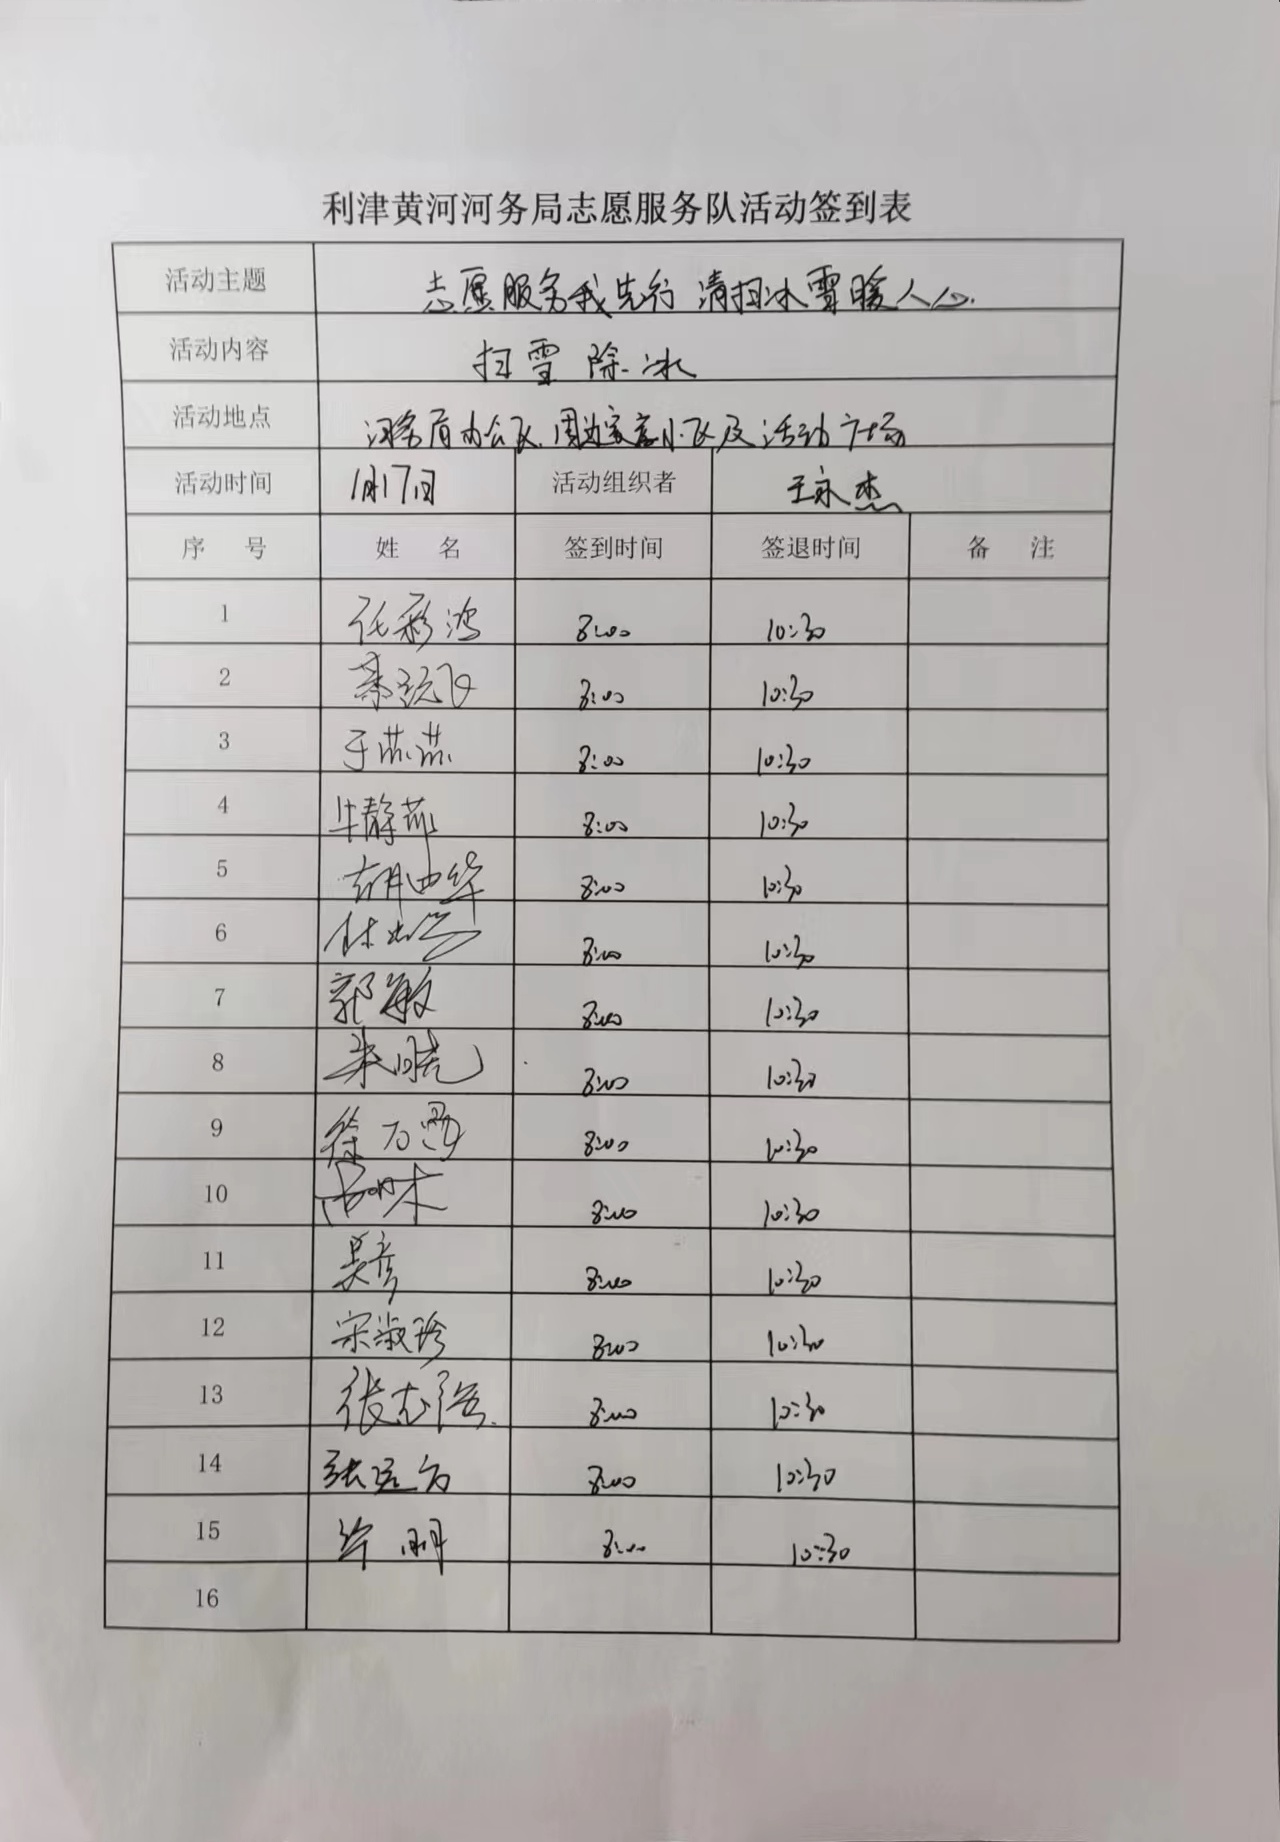 利津黄河河务局志愿服务队活动签到表
活动主题 志愿服务我先行 清扫冰雪暖人心.
活动内容 扫雪除冰
活动地点 河务局办公区、周边家属小区及活动广场
活动时间 1月17日 活动组织者 王永杰
序 号 姓 名 签到时间 签退时间 备 注
1 任彩鸿 8:00 10:30
2 8:00 10:30
3 于燕燕 8:00 10:30
4 牛静菲 8:00 10:30
5 胡曲华 8:00 10:30
6 8:00 10:30
7 郭敏 8:00 10:30
8 朱晓 8:00 10:30
9 徐 8:00 10:30
10 8:00 10:30
11 吴彦 8:00 10:30
12 宋淑珍 8:00 10:30
13 张志强 8:00 10:30
14 张 8:00 10:30
15 毕明 8:00 10:30
16